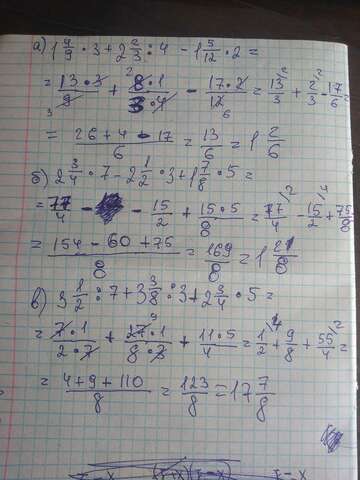 а) 1 4/9 · 3 + 2 2/3 : 4 − 1 5/12 · 2 =
= 13·3/9 + 8·1/3·4 − 17·2/12 = 13/3 + 2/3 − 17/6 =
= 26+4−17/6 = 13/6 = 1 2/6
б) 2 3/4 · 7 − 2 1/2 · 3 + 1 7/8 · 5 =
= 77/4 − 15/2 + 15·5/8 = 77/4 − 15/2 + 75/8
= 154 − 60 + 75/8 = 169/8 = 1 21/8
в) 3 1/2 : 7 + 3 3/8 : 3 + 2 3/4 · 5 =
= 7·1/2·7 + 27·1/8·3 + 11·5/4 = 1/2 + 9/8 + 55/4 =
= 4+9+110/8 = 123/8 = 17 7/8